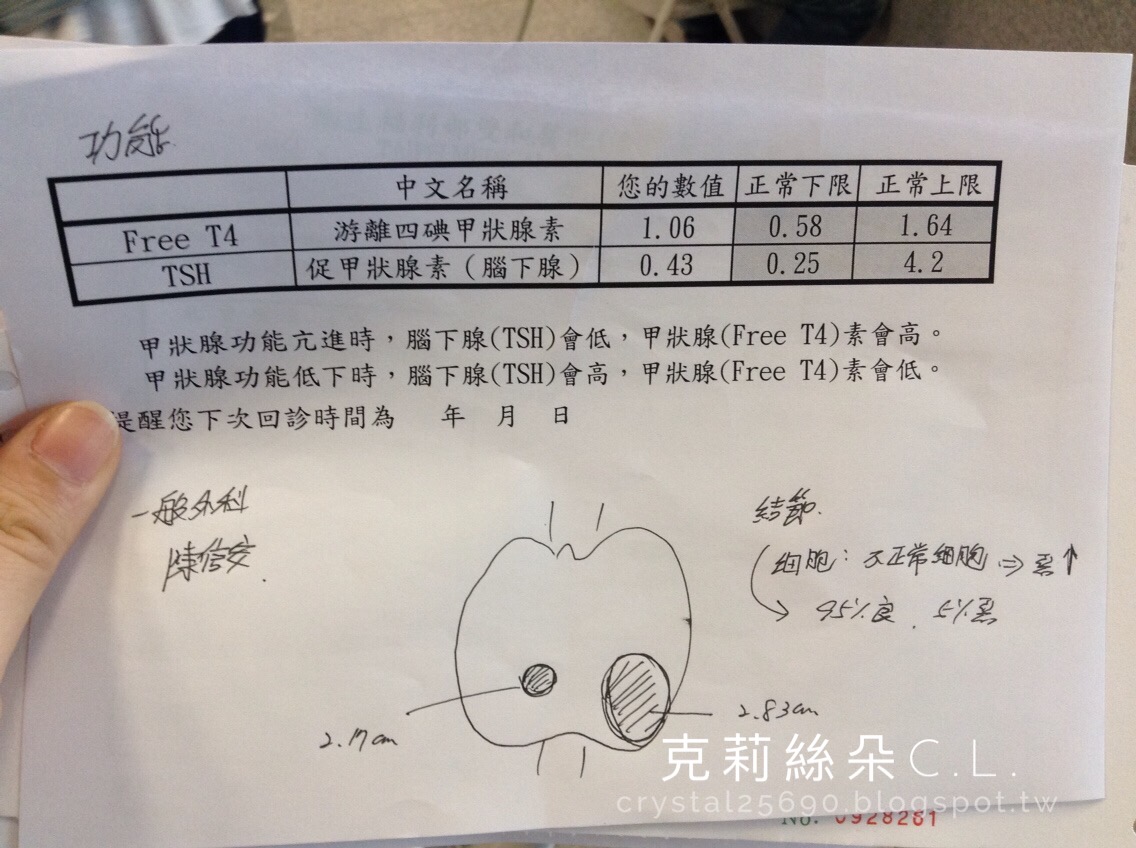 功能
中文名稱 您的數值 正常下限 正常上限
Free T4 游離四碘甲狀腺素 1.06 0.58 1.64
TSH 促甲狀腺素（腦下腺） 0.43 0.25 4.2
甲狀腺功能亢進時，腦下腺(TSH)會低，甲狀腺(Free T4)素會高。
甲狀腺功能低下時，腦下腺(TSH)會高，甲狀腺(Free T4)素會低。
提醒您下次回診時間為 年 月 日
一般外科
陳信安.
結節.
細胞：不正常細胞 ⇒ 惡↑
→ 95%良. 5%惡
2.17cm
2.83cm
克莉絲朵C.L.
crystal25690.blogspot.tw
No. 0928281